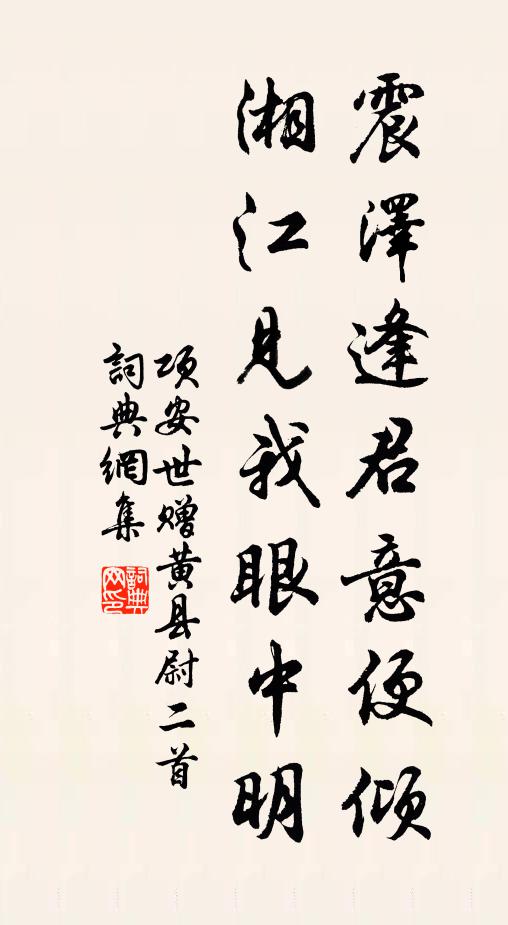 震澤逢君意便傾
湘江見我眼中明
项安世赠黄县尉二首
詞典網集
詞典
网印